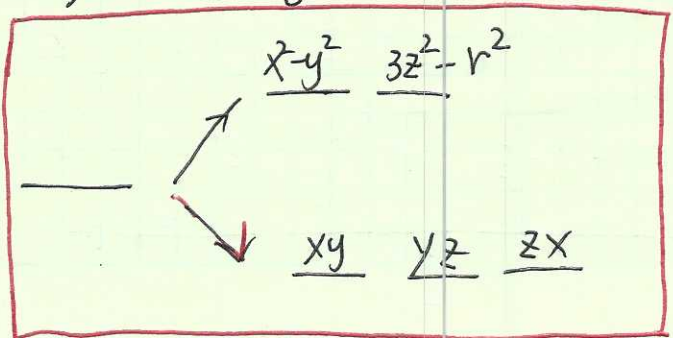 x²-y² 3z²-r²
xy yz zx